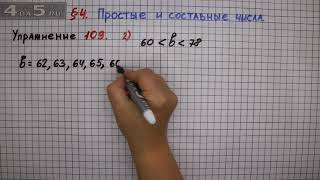 4 DA 5.RU §4. Простые и составные числа.
Упражнение 109. 2)
60 < b < 78
b = 62, 63, 64, 65, 66